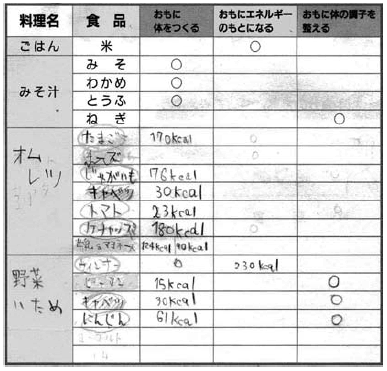 料理名 食品 おもに体をつくる おもにエネルギーのもとになる おもに体の調子を整える
ごはん 米 ○
みそ汁 みそ ○
わかめ ○
とうふ ○
ねぎ ○
オムレツ たまご 170kcal ○
チーズ ○
じゃがいも 76kcal
キャベツ 30kcal
トマト 23kcal
ケチャップ 180kcal
野菜いため ウィンナー ○ 230kcal
ピーマン 15kcal ○
キャベツ 30kcal ○
にんじん 61kcal ○